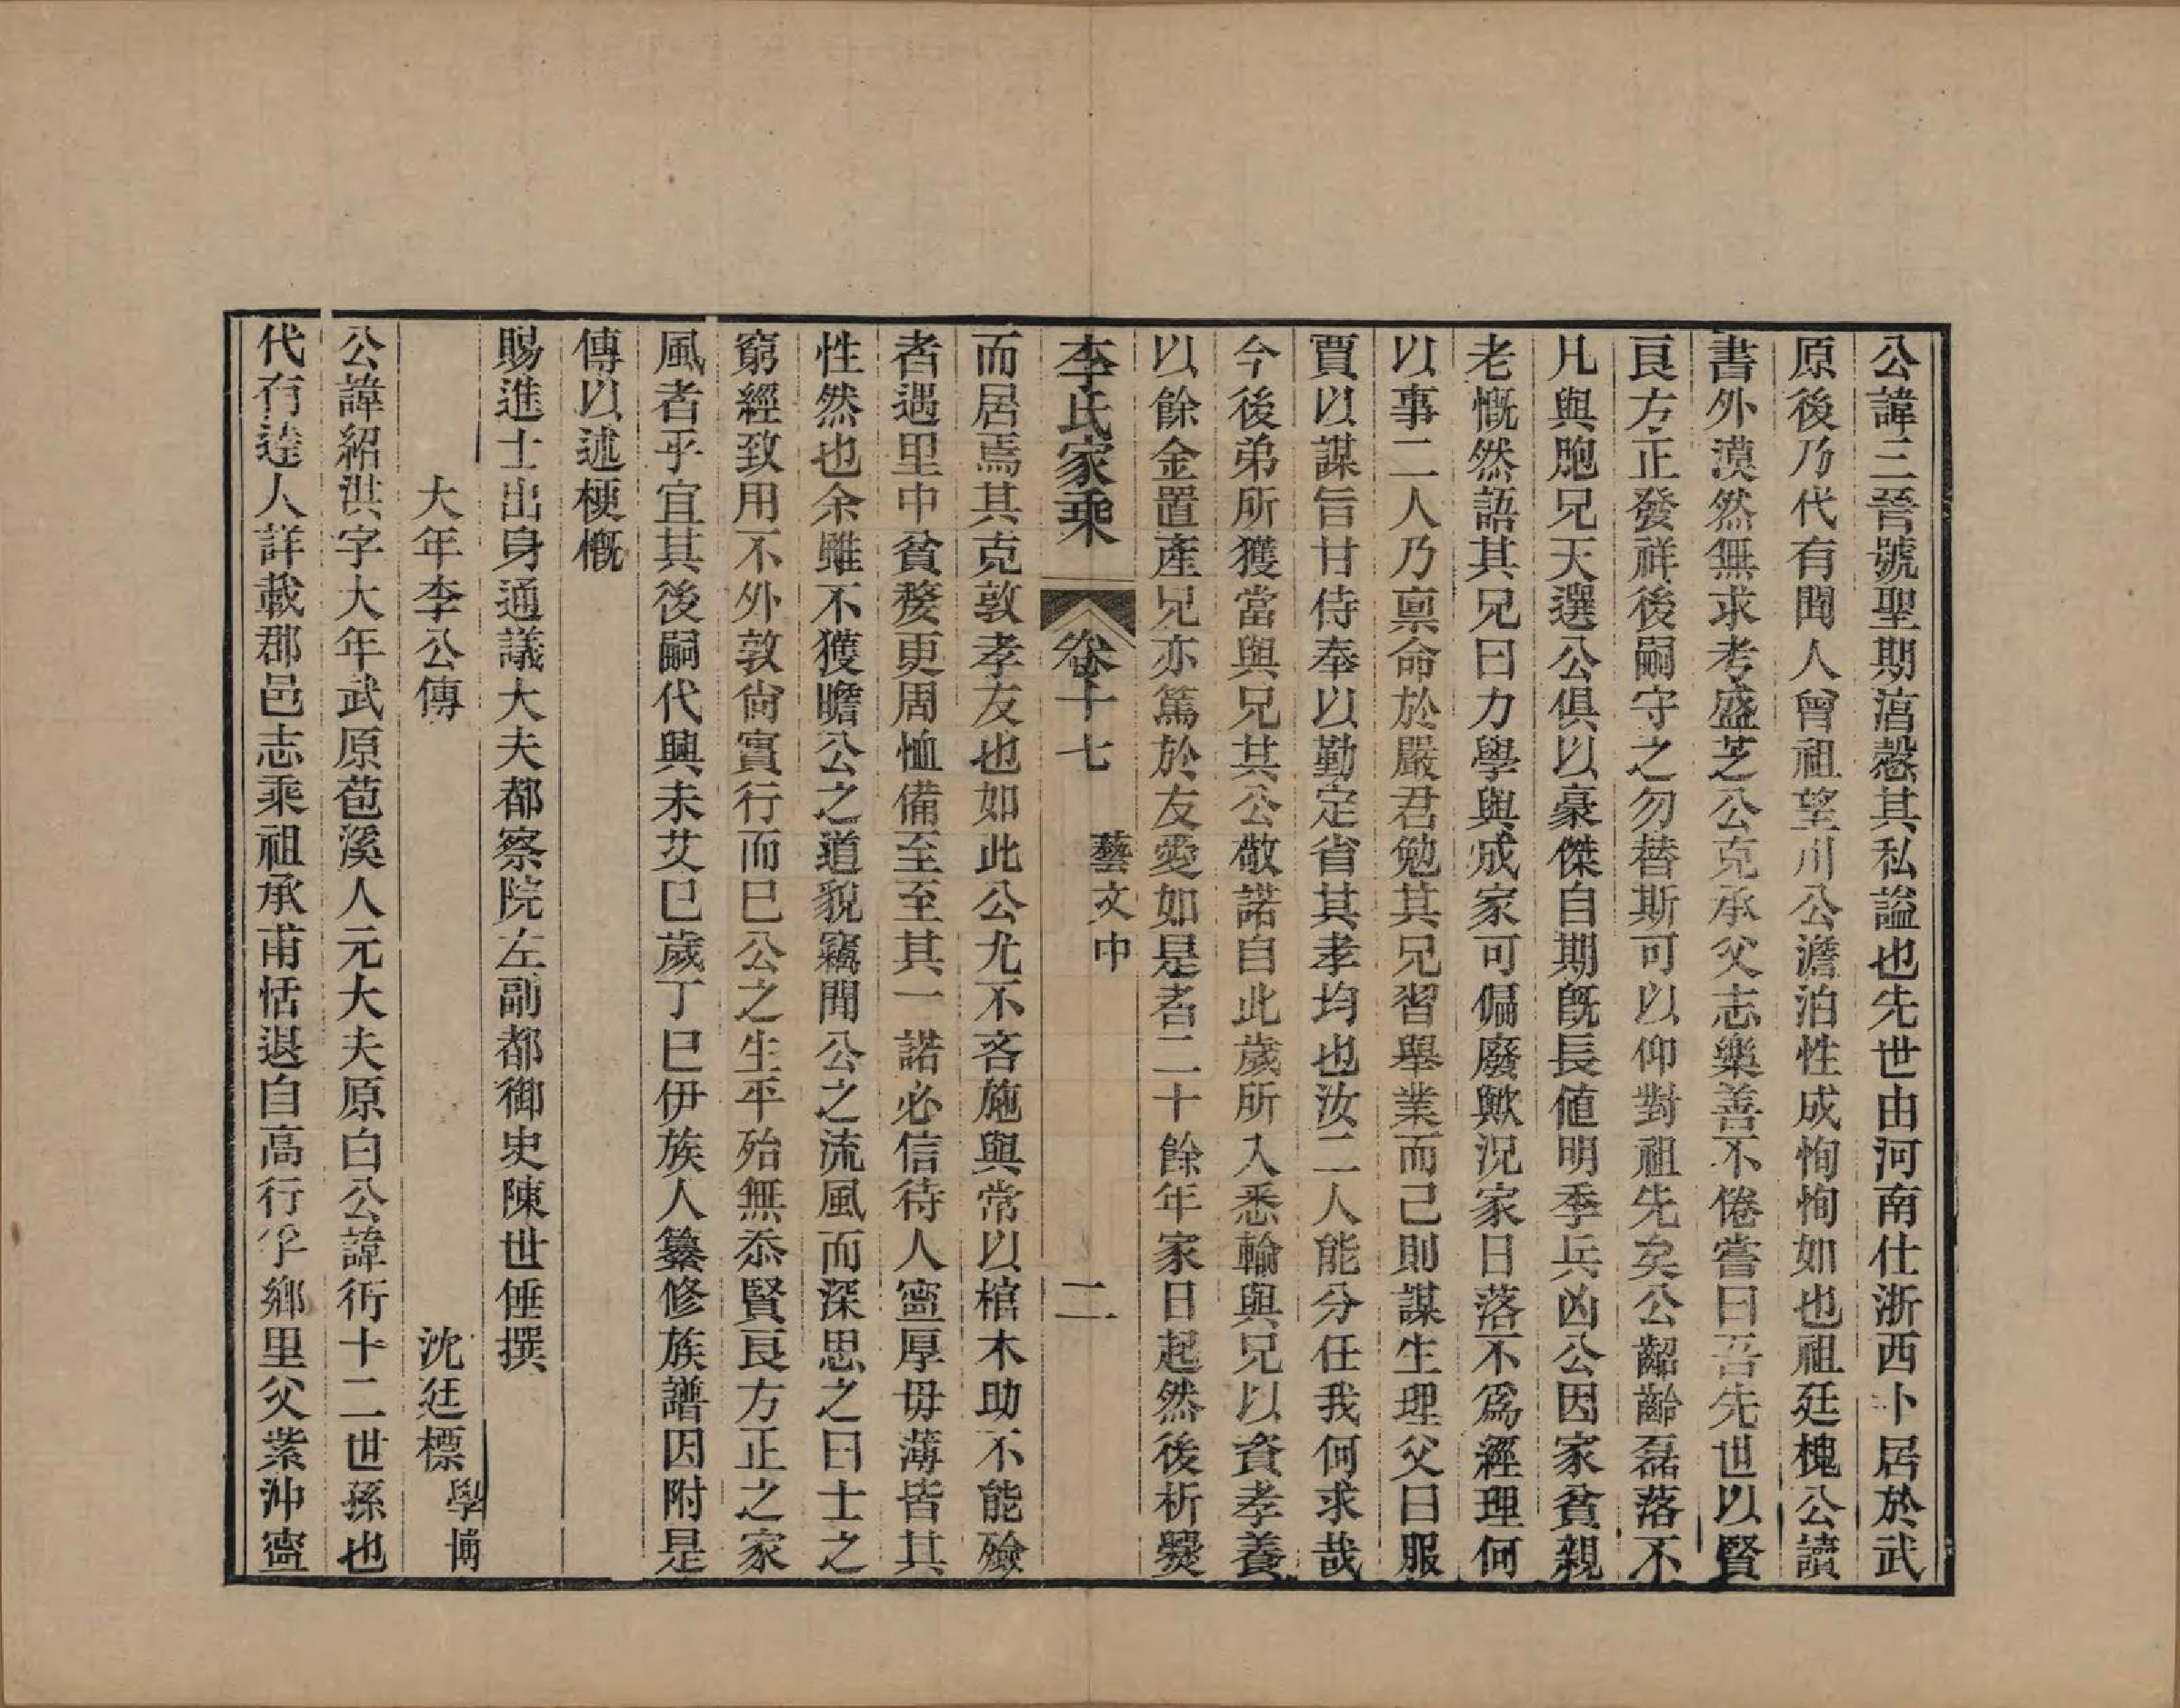 公諱三晉號聖期淯慤其私諡也先世由河南仕浙西卜居於武
原後乃代有聞人曾祖望川公澹泊性成恂恂如也祖廷槐公讀
書外漠然無求考盛芝公克承父志樂善不倦嘗曰吾先世以賢
良方正發祥後嗣守之勿替斯可以仰對祖先矣公齠齡磊落不
凡與胞兄天選公俱以豪傑自期旣長値明季兵凶公因家貧親
老慨然語其兄曰力學與成家可偏廢歟況家日落不爲經理何
以事二人乃稟命於嚴君勉其兄習舉業而己則謀生理父曰服
賈以謀旨甘侍奉以勤定省其孝均也汝二人能分任我何求哉
今後弟所獲當與兄共公敬諾自此歲所入悉輸與兄以資孝養
以餘金置產兄亦篤於友愛如是者二十餘年家日起然後析爨
李氏家乘 卷十七 藝文中 二
而居焉其克敦孝友也如此公尤不吝施與常以棺木助不能殮
者遇里中貧婺更周恤備至至其一諾必信待人寧厚毋薄皆其
性然也余雖不獲瞻公之道貌竊聞公之流風而深思之曰士之
窮經致用不外敦尙實行而巳公之生平殆無忝賢良方正之家
風者乎宜其後嗣代興未艾巳歲丁巳伊族人纂修族譜因附是
傳以述梗槪
賜進士出身通議大夫都察院左副都御史陳世倕撰
大年李公傳 沈廷標 學博
公諱紹洪字大年武原苞溪人元大夫原白公諱衎十二世孫也
代有逵人詳載郡邑志乘祖承甫恬退自高行孚鄉里父紫沖寧